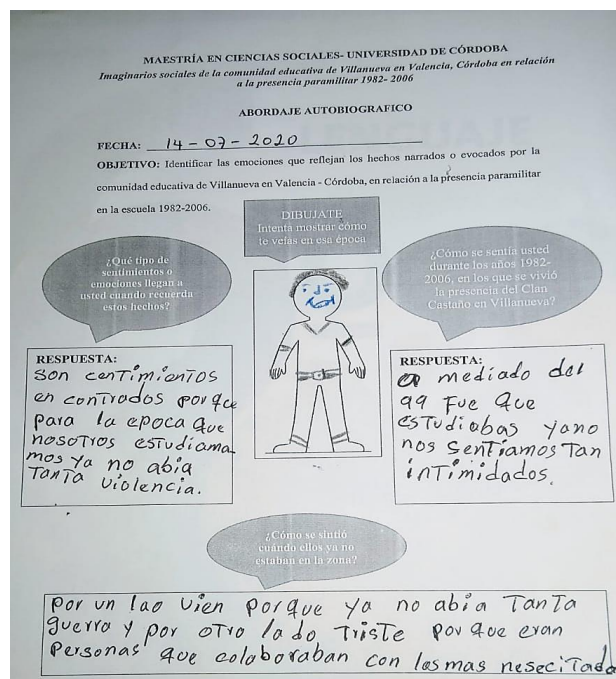 MAESTRÍA EN CIENCIAS SOCIALES- UNIVERSIDAD DE CÓRDOBA
Imaginarios sociales de la comunidad educativa de Villanueva en Valencia, Córdoba en relación
a la presencia paramilitar 1982- 2006
ABORDAJE AUTOBIOGRAFICO
FECHA: 14-07-2020
OBJETIVO: Identificar las emociones que reflejan los hechos narrados o evocados por la
comunidad educativa de Villanueva en Valencia - Córdoba, en relación a la presencia paramilitar
en la escuela 1982-2006.
DIBUJATE
Intenta mostrar cómo
te veías en esa época
¿Qué tipo de
sentimientos o
emociones llegan a
usted cuando recuerda
estos hechos?
RESPUESTA:
Son centimientos
en contrados porque
para la epoca que
nosotros estudiama
mos ya no abia
Tanta violencia.
¿Cómo se sentía usted
durante los años 1982-
2006, en los que se vivió
la presencia del Clan
Castaño en Villanueva?
RESPUESTA:
a mediado del
99 Fue que
estudiabas yano
nos sentíamos Tan
intimidados.
¿Cómo se sintió
cuándo ellos ya no
estaban en la zona?
Por un lao vien porque ya no abia Tanta
guerra y por otro lado Triste porque eran
Personas que colaboraban con las mas nesecitada